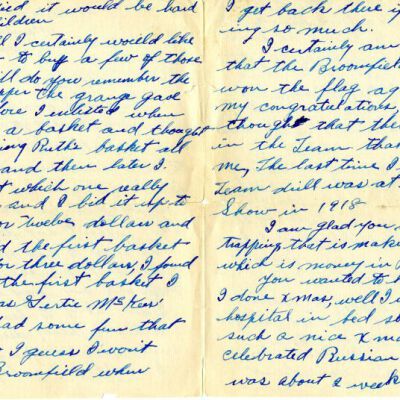 it would be hard
children
I certainly would like
to buy a few of those
do you remember the
the grange gad
I enlisted when
a basket and thought
Ruths basket all
and then later I
which one really
and I bid it up to
or twelve dollars and
the first basket
for three dollars, I found
the first basket I
as Gertie McKees'
had some fun that
I guess I wont
Broomfield when
I get back there if
ing so much.
I certainly am
that the Broomfield
won the flag ag
my congratulations,
thought that the
in the Team tha
me, The last time I
Team drill was at
Show in 1918
I am glad you
trapping that is make
which is money in
You wanted to
I done xmas, well I w
hospital in bed so
such a nice xma
celebrated Russian
was about a week